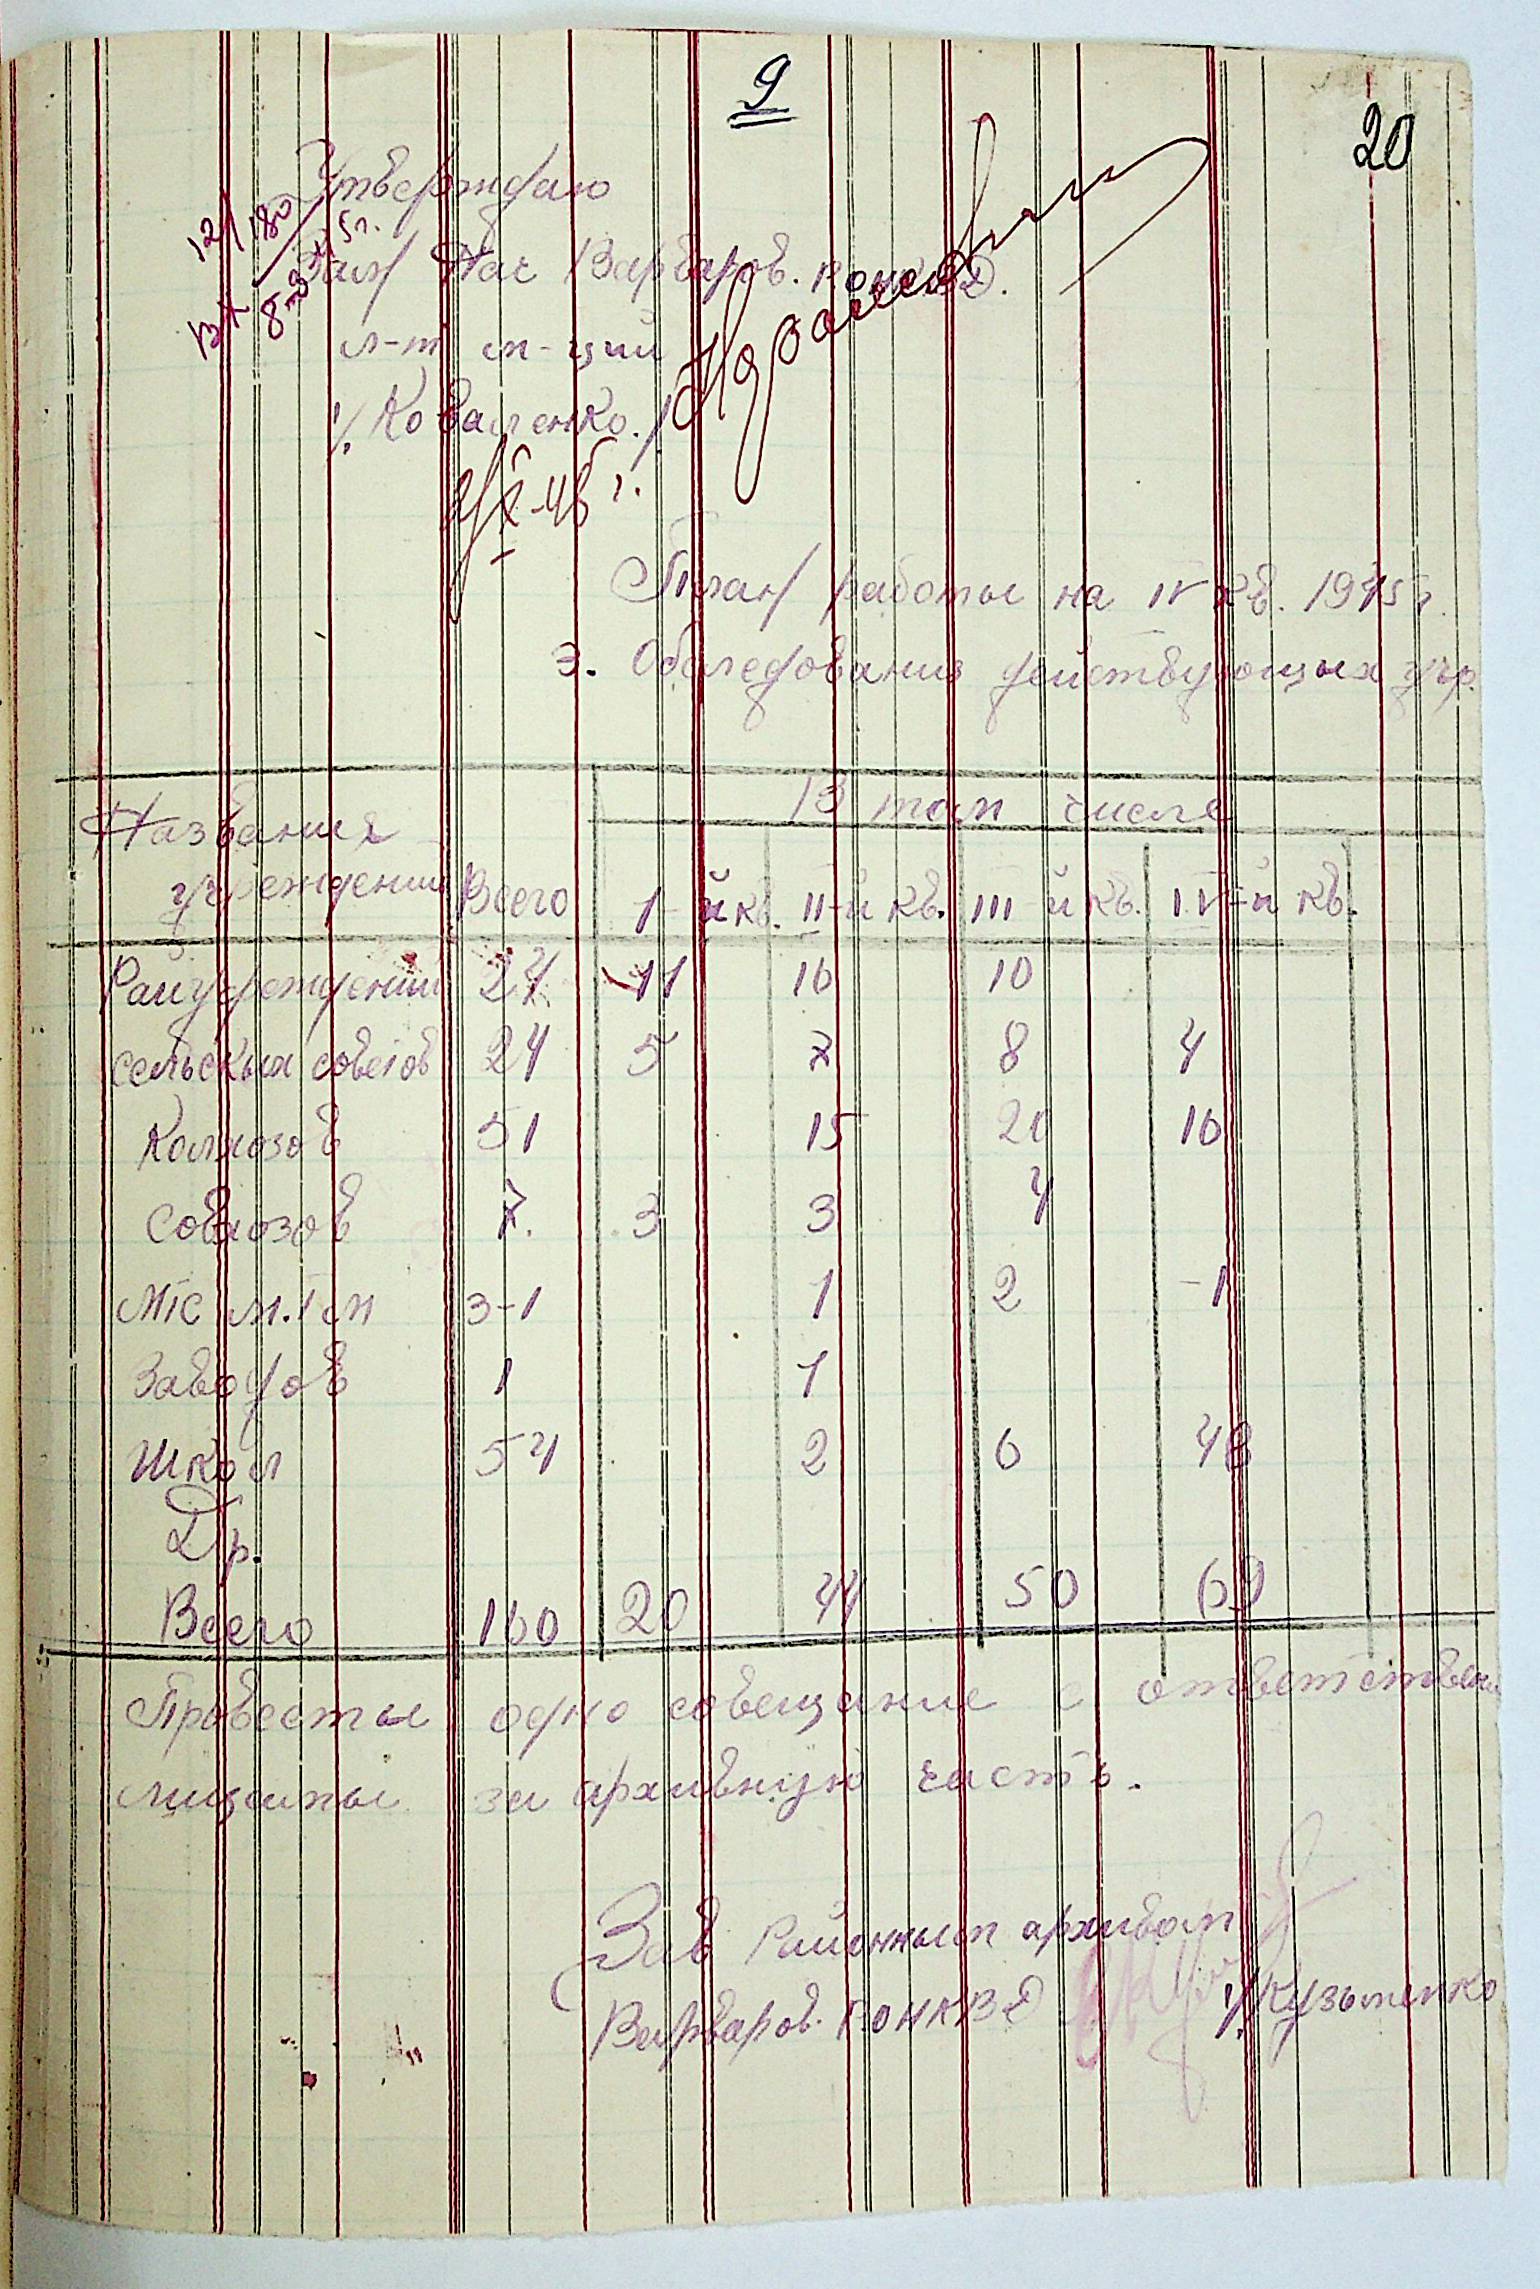 9
20
Утверждаю
Зам Нач Варваров. РОНКВД.
л-т м-ции
/. Коваленко. /
X-45 г.
План работы на IV кв. 1945 г.
3. Обследования действующих учр.
Названия учреждении Всего В том числе
1-й кв. II-й кв. III-й кв. IV-й кв.
Райучреждении 24 11 10 10
сельських советов 24 5 7 8 4
Колхозов 51 15 20 16
Совхозов 7. 3 3 4
МТС м.Т м 3-1 1 2 -1
Заводов 1 1
Школ 54 2 6 48
Др.
Всего 160 20 44 50 69
Провесты одно совещание с ответствен
лицамы за архивную часть.
Зав Районным архивом
Варваров. РОНКВД /. Кузьменко